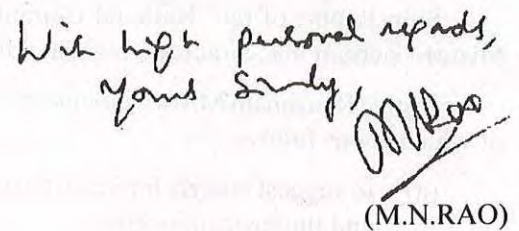 With high personal regards,
yours Sincerely,
MNRao
(M.N.RAO)